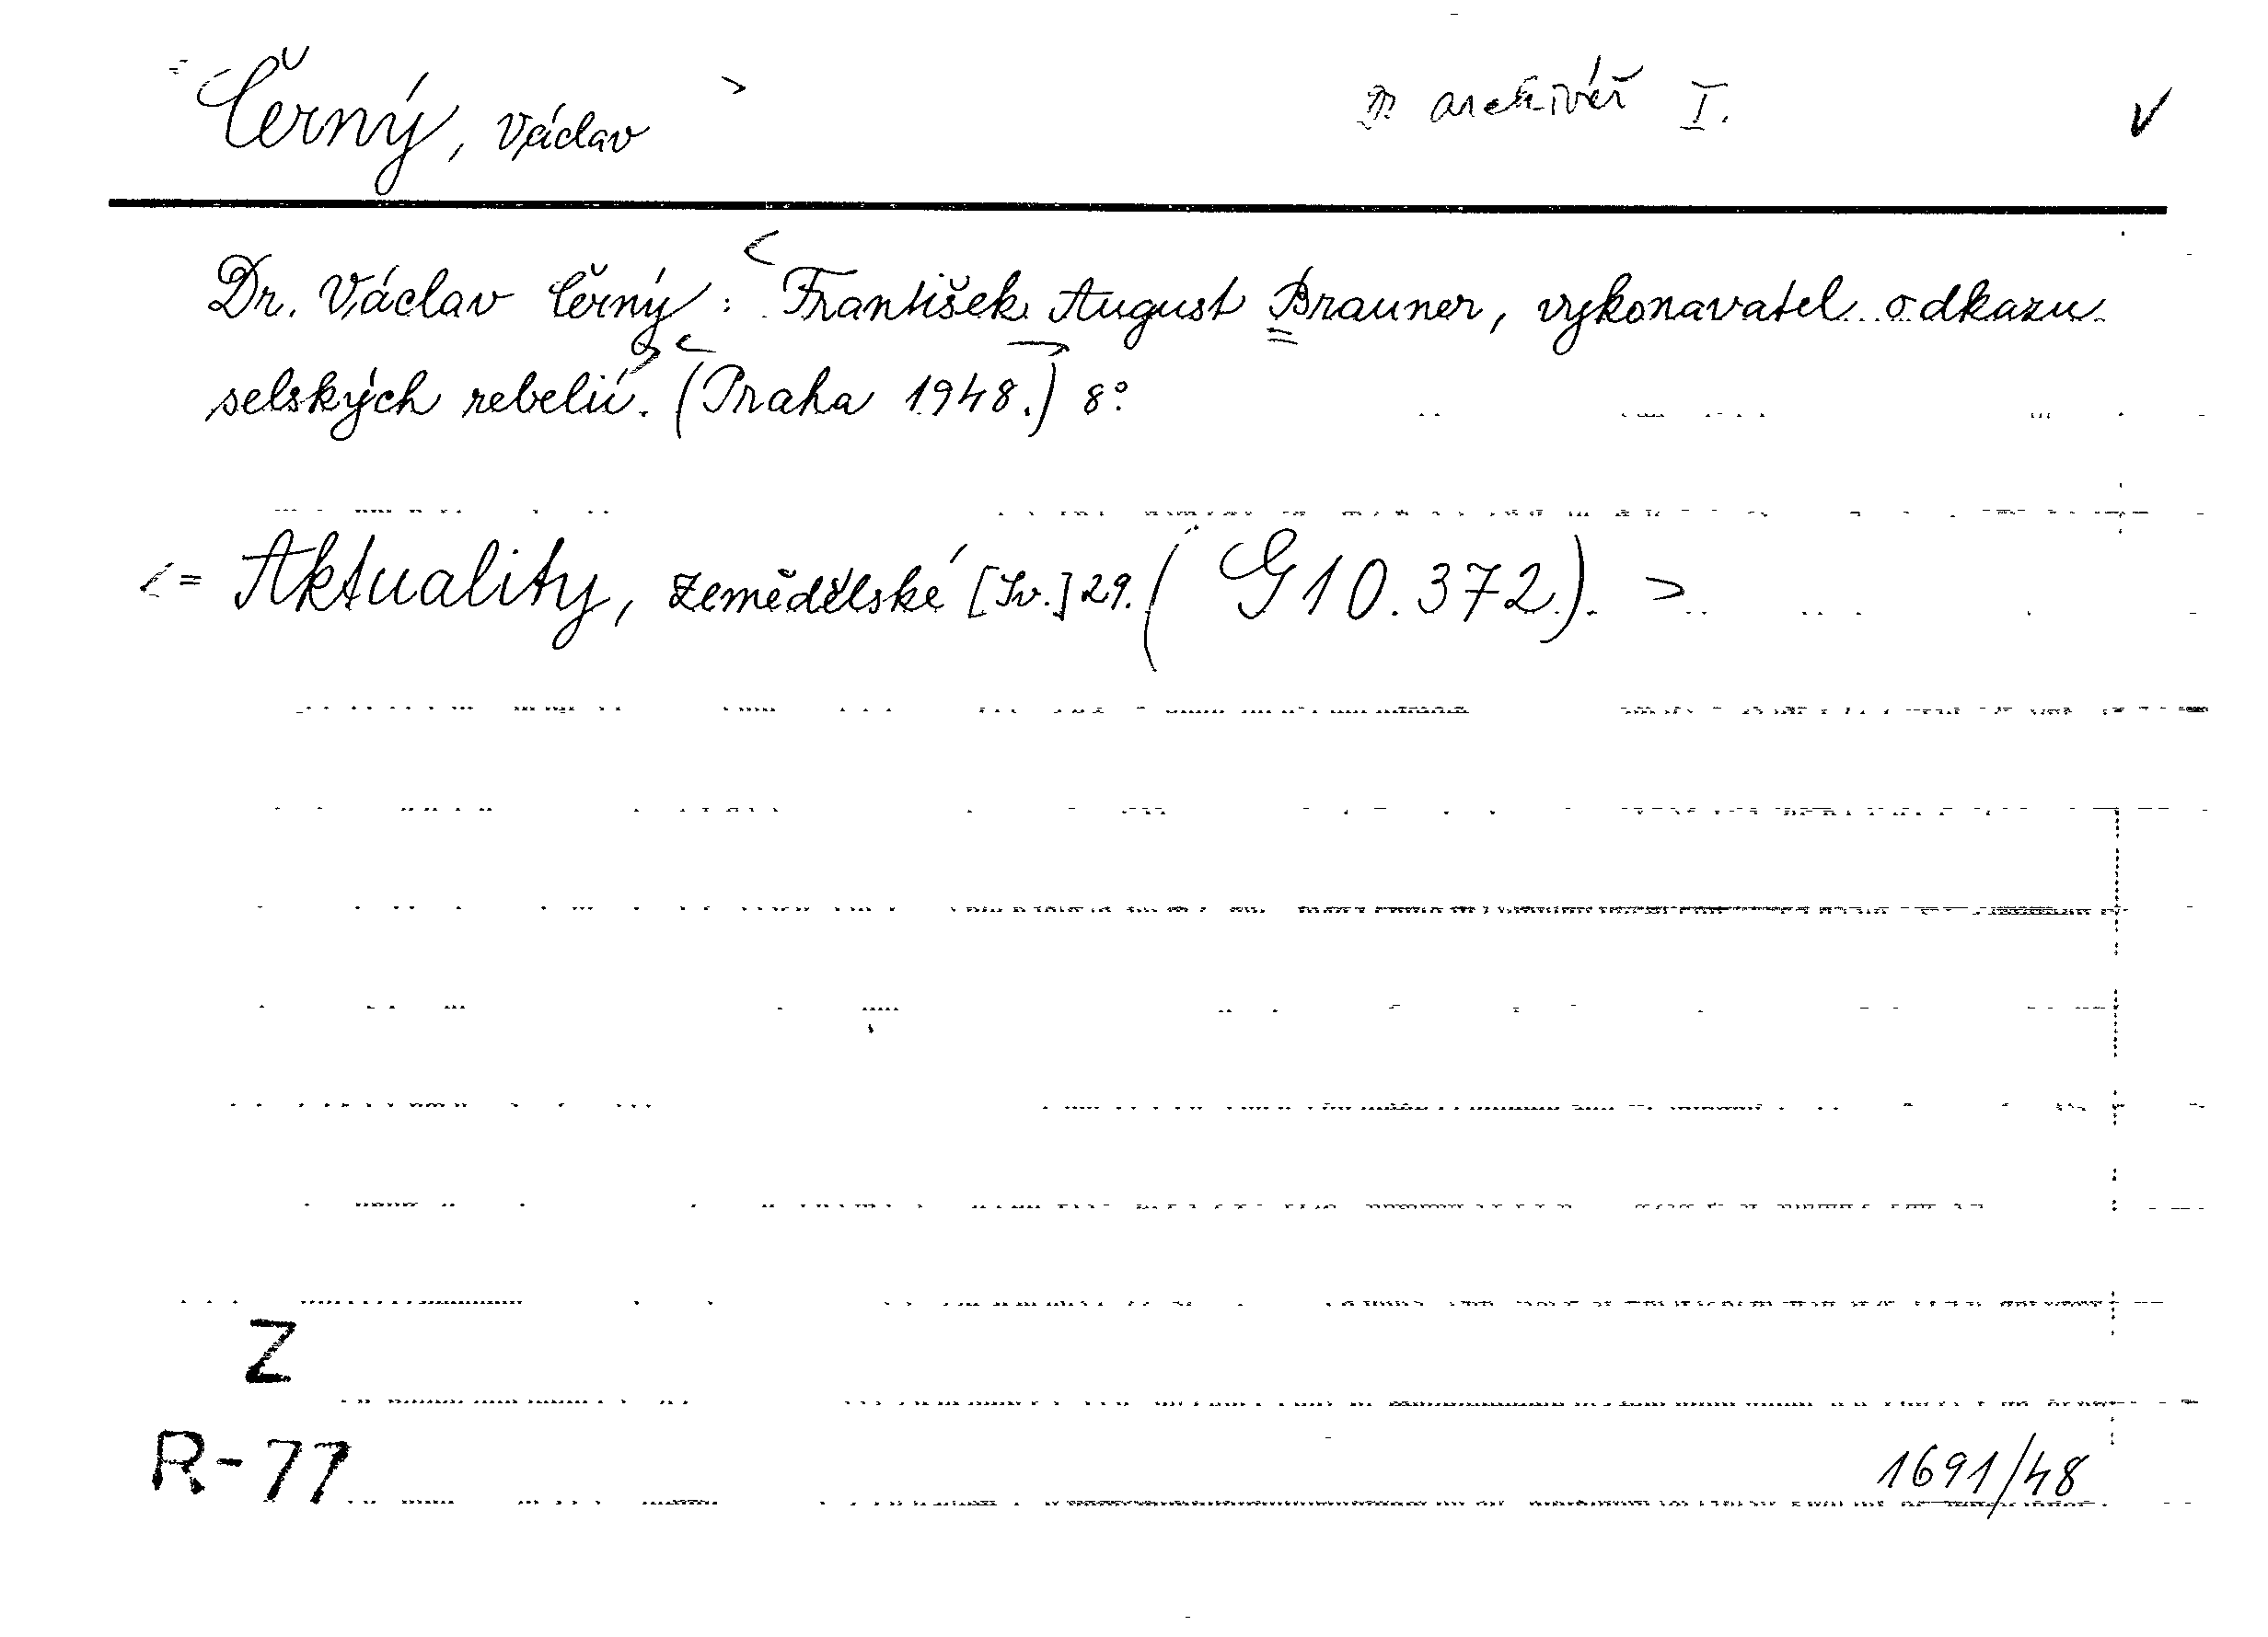 Černý, Václav archivář I. V
Dr. Václav Černý: František August Brauner, vykonavatel odkazu
selských rebelií. (Praha 1948.) 8°.
= Aktuality, zemědělské [Sv.] 29. (G10.372).
Z
R-77
1691/48